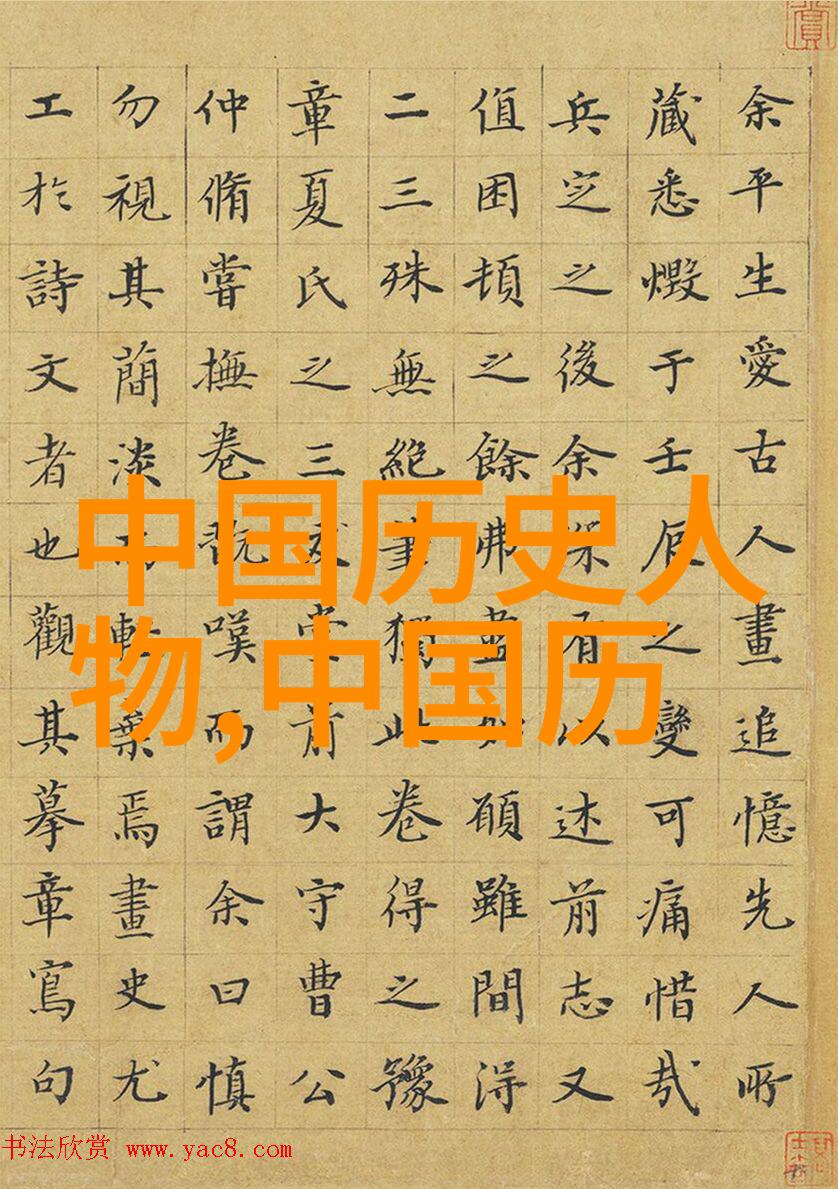 余平生愛古人畫追憶先人所
藏悉燬于壬辰之變可痛惜哉
兵定之後余深有以述前志又
值困頓之餘弗盡如願雖間淂
二三殊無絕筆獨此卷得之豫
章夏氏之三友堂前大守曹公
仲脩嘗撫卷既嘆而謂余曰慎
勿視其蕑淡而輕棄焉畫史尤
工於詩文者也觀其摹章寫句
中国历史人
物,中国历
书法欣赏 www.yac8.com